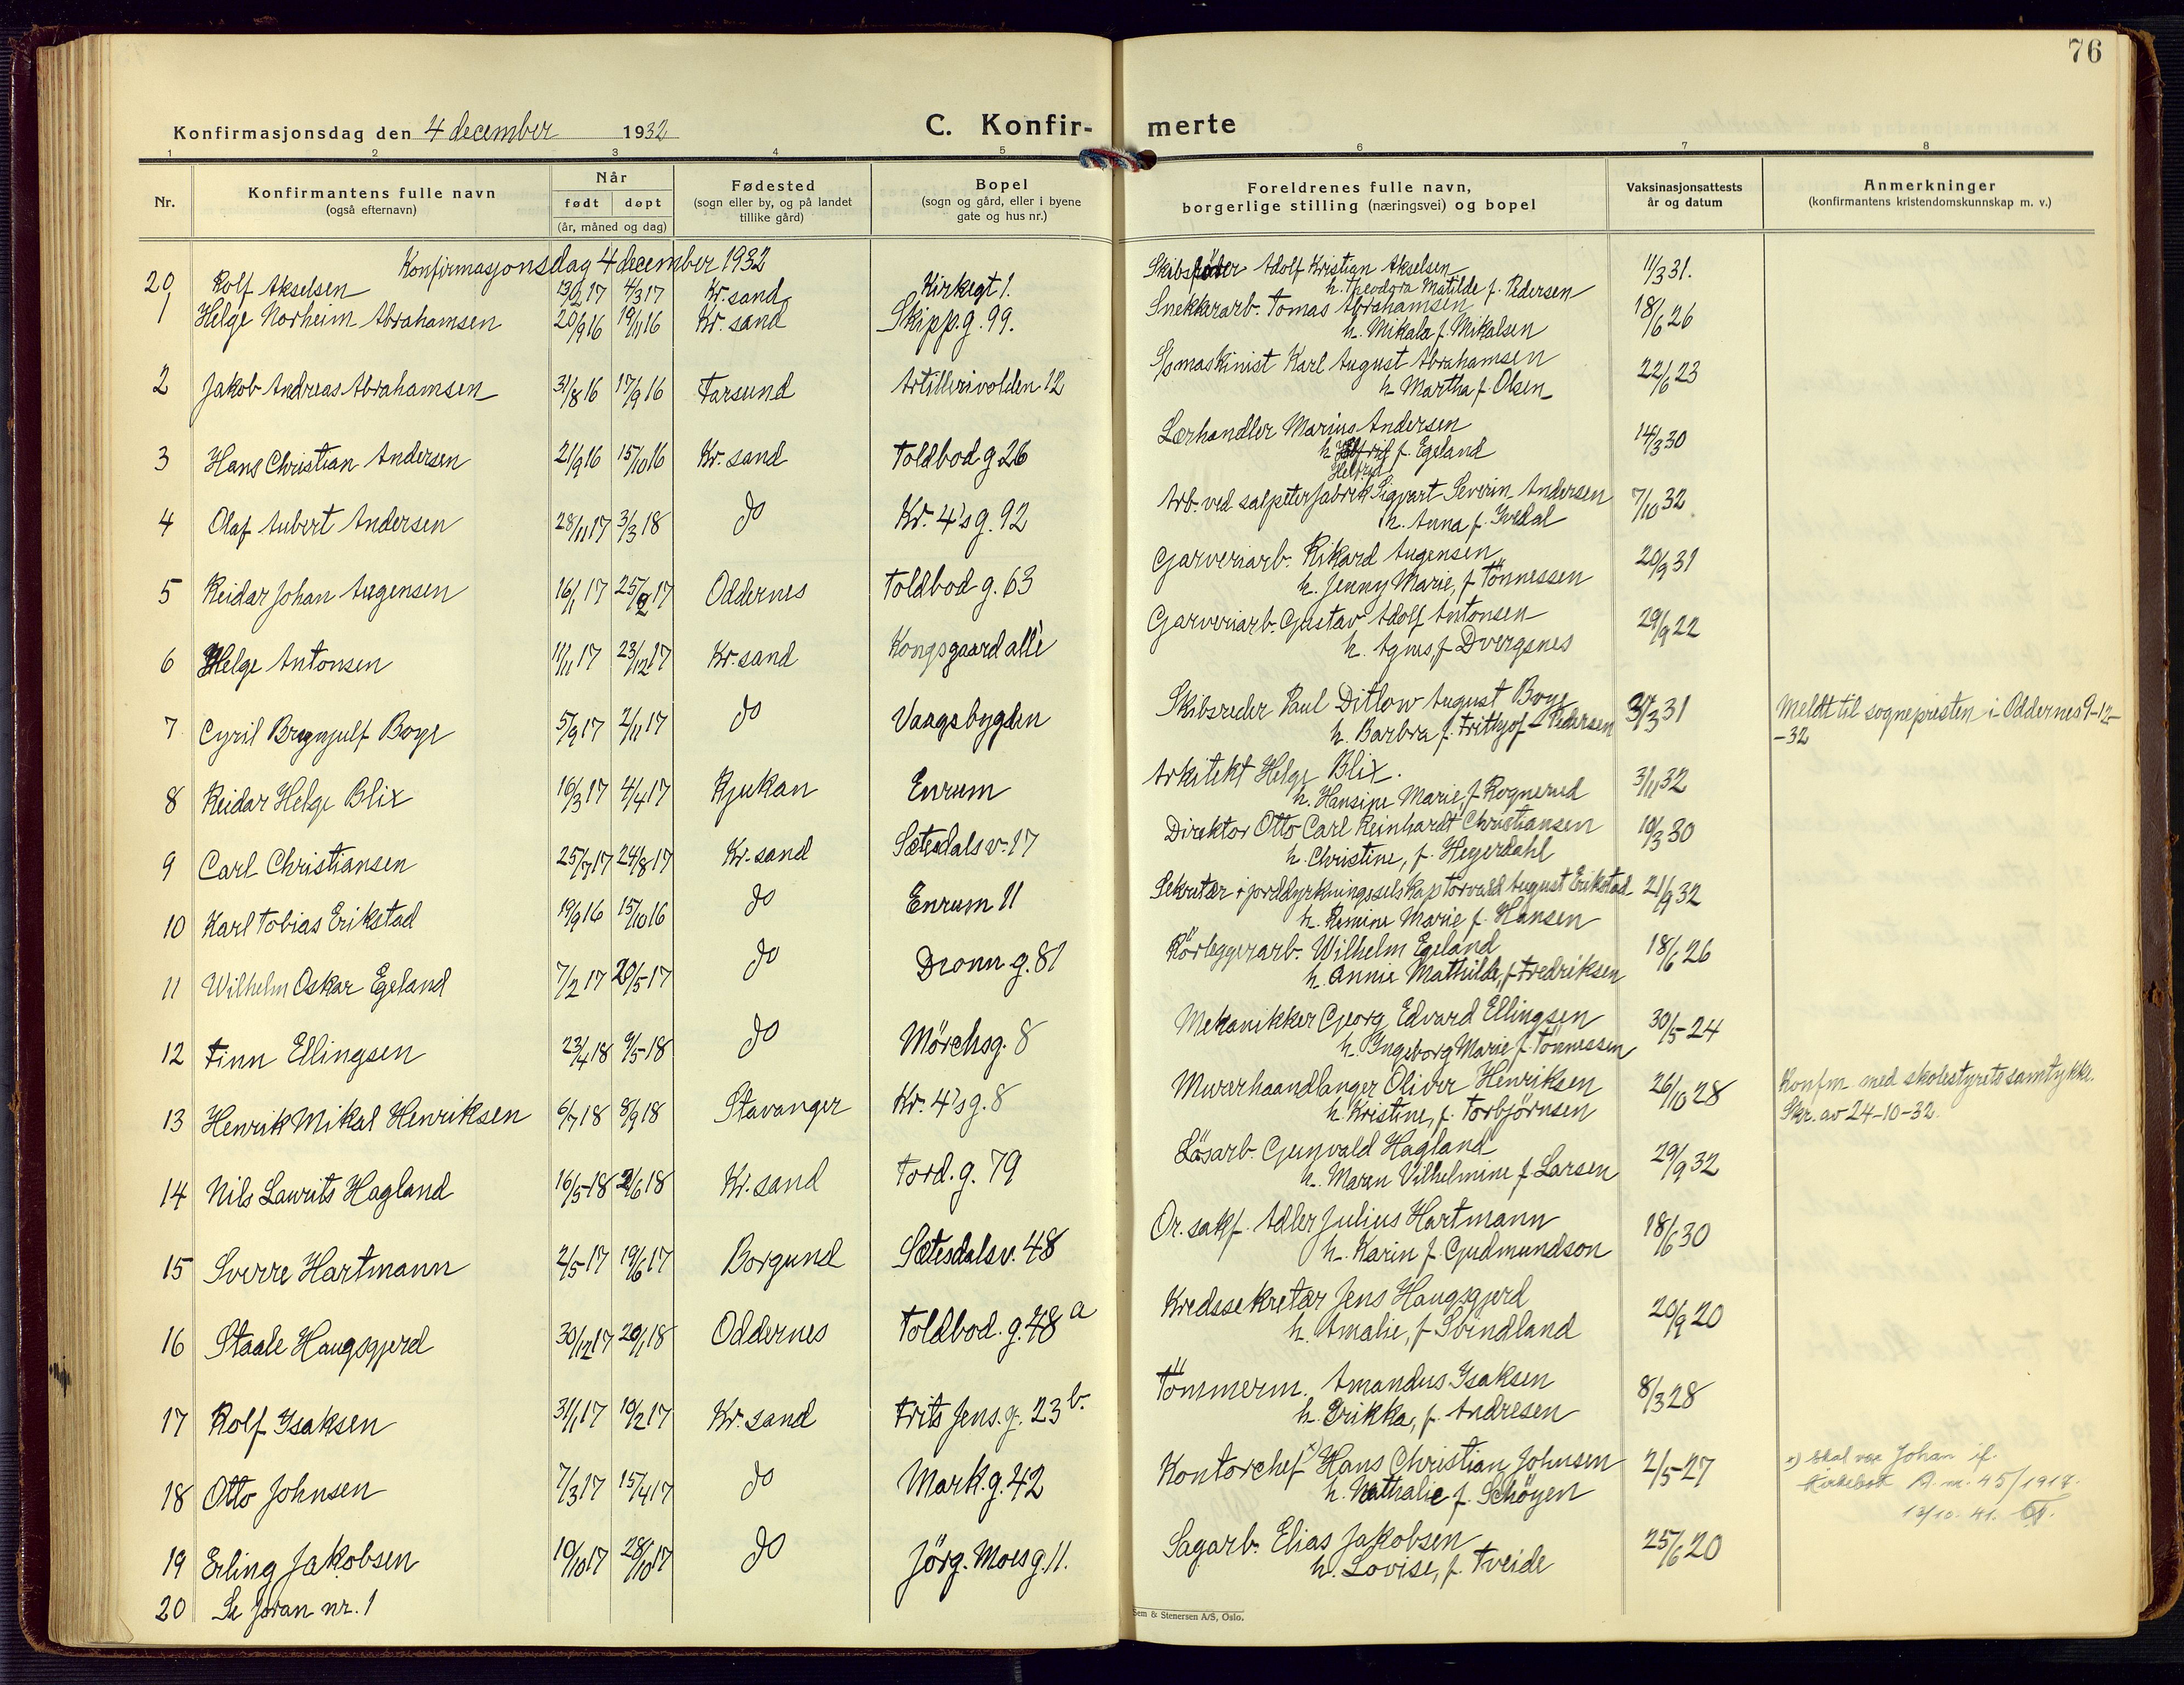 76
Konfirmasjonsdag den 4 december 1932
C. Konfir- merte
1 2 3 4 5 6 7 8
Nr.
Konfirmantens fulle navn
(også efternavn)
Når
født døpt
(år, måned og dag)
Fødested
(sogn eller by, og på landet
tillike gård)
Bopel
(sogn og gård, eller i byene
gate og hus nr.)
Foreldrenes fulle navn,
borgerlige stilling (næringsvei) og bopel
Vaksinasjonsattests
år og datum
Anmerkninger
(konfirmantens kristendomskunnskap m. v.)
Konfirmasjonsdag 4 december 1932
20 Rolf Akselsen 13/2 17 4/3 17 Kr.sand Kirkegt 1. Adolf Kristian Akselsen 11/3 31.
h. Theodora Matilde f. Pedersen
1 Helge Norheim Abrahamsen 20/9 16 19/11 16 Kr. sand Skipp.g. 99. Snekkerarb. Tomas Abrahamsen 18/6 26
h. Mikala f. Mikalsen
2 Jakob Andreas Abrahamsen 31/8 16 17/9 16 Farsund Artillerivolden 12 S/pmaskinist Karl August Abrahamsen 22/6 23
h. Martha f. Olsen
3 Hans Christian Andersen 21/9 16 15/10 16 Kr. sand Toldbod g 26 Lærhandler Marius Andersen 14/3 30
h. f. Egeland
Helfrid
4 Olaf Aubert Andersen 28/11 17 3/3 18 do Kr. 4's g. 92 Arb. ved salpeterfabrik Sigvart Severin Andersen 7/10 32
h. Anna f. Ivedal
5 Reidar Johan Augensen 16/1 17 25/2 17 Oddernes Toldbod g. 63 Garveriarb. Rikard Augensen 20/9 31
h. Jenny Marie, f. Tönnessen
6 Helge Antonsen 11/11 17 23/12 17 Kr.sand Kongsgaard allè Garveriarb. Gustav Adolf Antonsen 29/9 22
h. Agnes f. Dvergsnes
7 Cyril Brynjulf Boye 5/9 17 2/11 17 do Vaagsbygden Skibsreder Paul Ditlow August Boye 3/3 31 Meldt til sognepresten i Oddernes 9-12-
h. Barbra f. Frithjof-Pedersen -32
8 Reidar Helge Blix 16/3 17 4/4 17 Rjukan Enrum Arkitekt Helge Blix. 3/11 32
h. Hansine Marie, f. Rognerud
9 Carl Christiansen 25/7 17 24/8 17 Kr.sand Sætesdalsv. 17 Direktör Otto Carl Reinhardt Christiansen 10/3 30
h. Christine, f. Heyerdahl
10 Karl Tobias Erikstad 19/9 16 15/10 16 do Enrum 11 Sekretær i jorddyrkningsselskap Torvald August Erikstad 21/9 32
h. Remine Marie f. Hansen
11 Wilhelm Oskar Egeland 7/2 17 20/5-17 do Dronn g. 81 Rörleggerarb. Wilhelm Egeland 18/6 26
h. Annie Mathilde, f. Fredriksen
12 Finn Ellingsen 23/4 18 9/5-18 do Mörchsg. 8 Mekanikker Georg Edvard Ellingsen 30/5-24
h. Ingeborg Marie f. Tönnessen
13 Henrik Mikal Henriksen 6/7 18 8/9 18 Stavanger Kr. 4's g. 8 Murerhaandlanger Oliver Henriksen 26/10 28 Konfm. med skolestyrets samtykke.
h. Kristine, f. Torbjörnsen Skr. av 24-10-32.
14 Nils Laurits Hagland 16/5-18 2/6 18 Kr. sand Tord. g. 79 Lösarb. Gunvald Hagland 29/9 32
h. Maren Vilhelmine f. Larsen
15 Sverre Hartmann 2/5-17 19/6 17 Borgund Sætesdalsv. 48 Or. sakf. Adler Julius Hartmann 18/6 30
h. Karin f. Gudmundson
16 Staale Haugsgjerd 30/12 17 20/1 18 Oddernes Toldbod. g. 48 a Kredssekretær Jens Haugsgjerd 20/9 20
h. Amalie, f. Svindland
17 Rolf Isaksen 31/1 17 10/2 17 Kr. sand Frits Jens. g. 23 b. Tömmerm. Amandus Isaksen 8/3 28
h. Erikka, f. Andresen
18 Otto Johnsen 7/3 17 15/4 17 do Mark.g. 42 Kontorchef x) Hans Christian Johnsen 2/5-27 x) Skal være Johan if.
h. Nathalie f. Schöyen Kirkebok A. nr. 45/1917.
13/10. 41.
19 Erling Jakobsen 10/10 17 28/10 17 do Jörg. Moes g. 11. Sagarb. Elias Jakobsen 25/6 20
h. Lovise, f. Tveide
20 Se foran nr. 1
Sem & Stenersen A/S, Oslo.